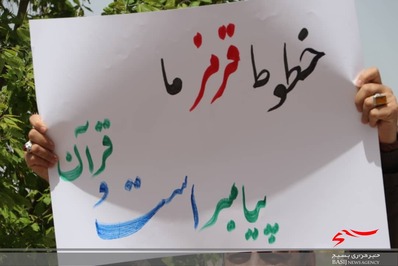 خطوط قرمز ما
قرآن
و
پیامبر است
بسیج
خبرگزاری بسیج
BASIJ NEWS AGENCY